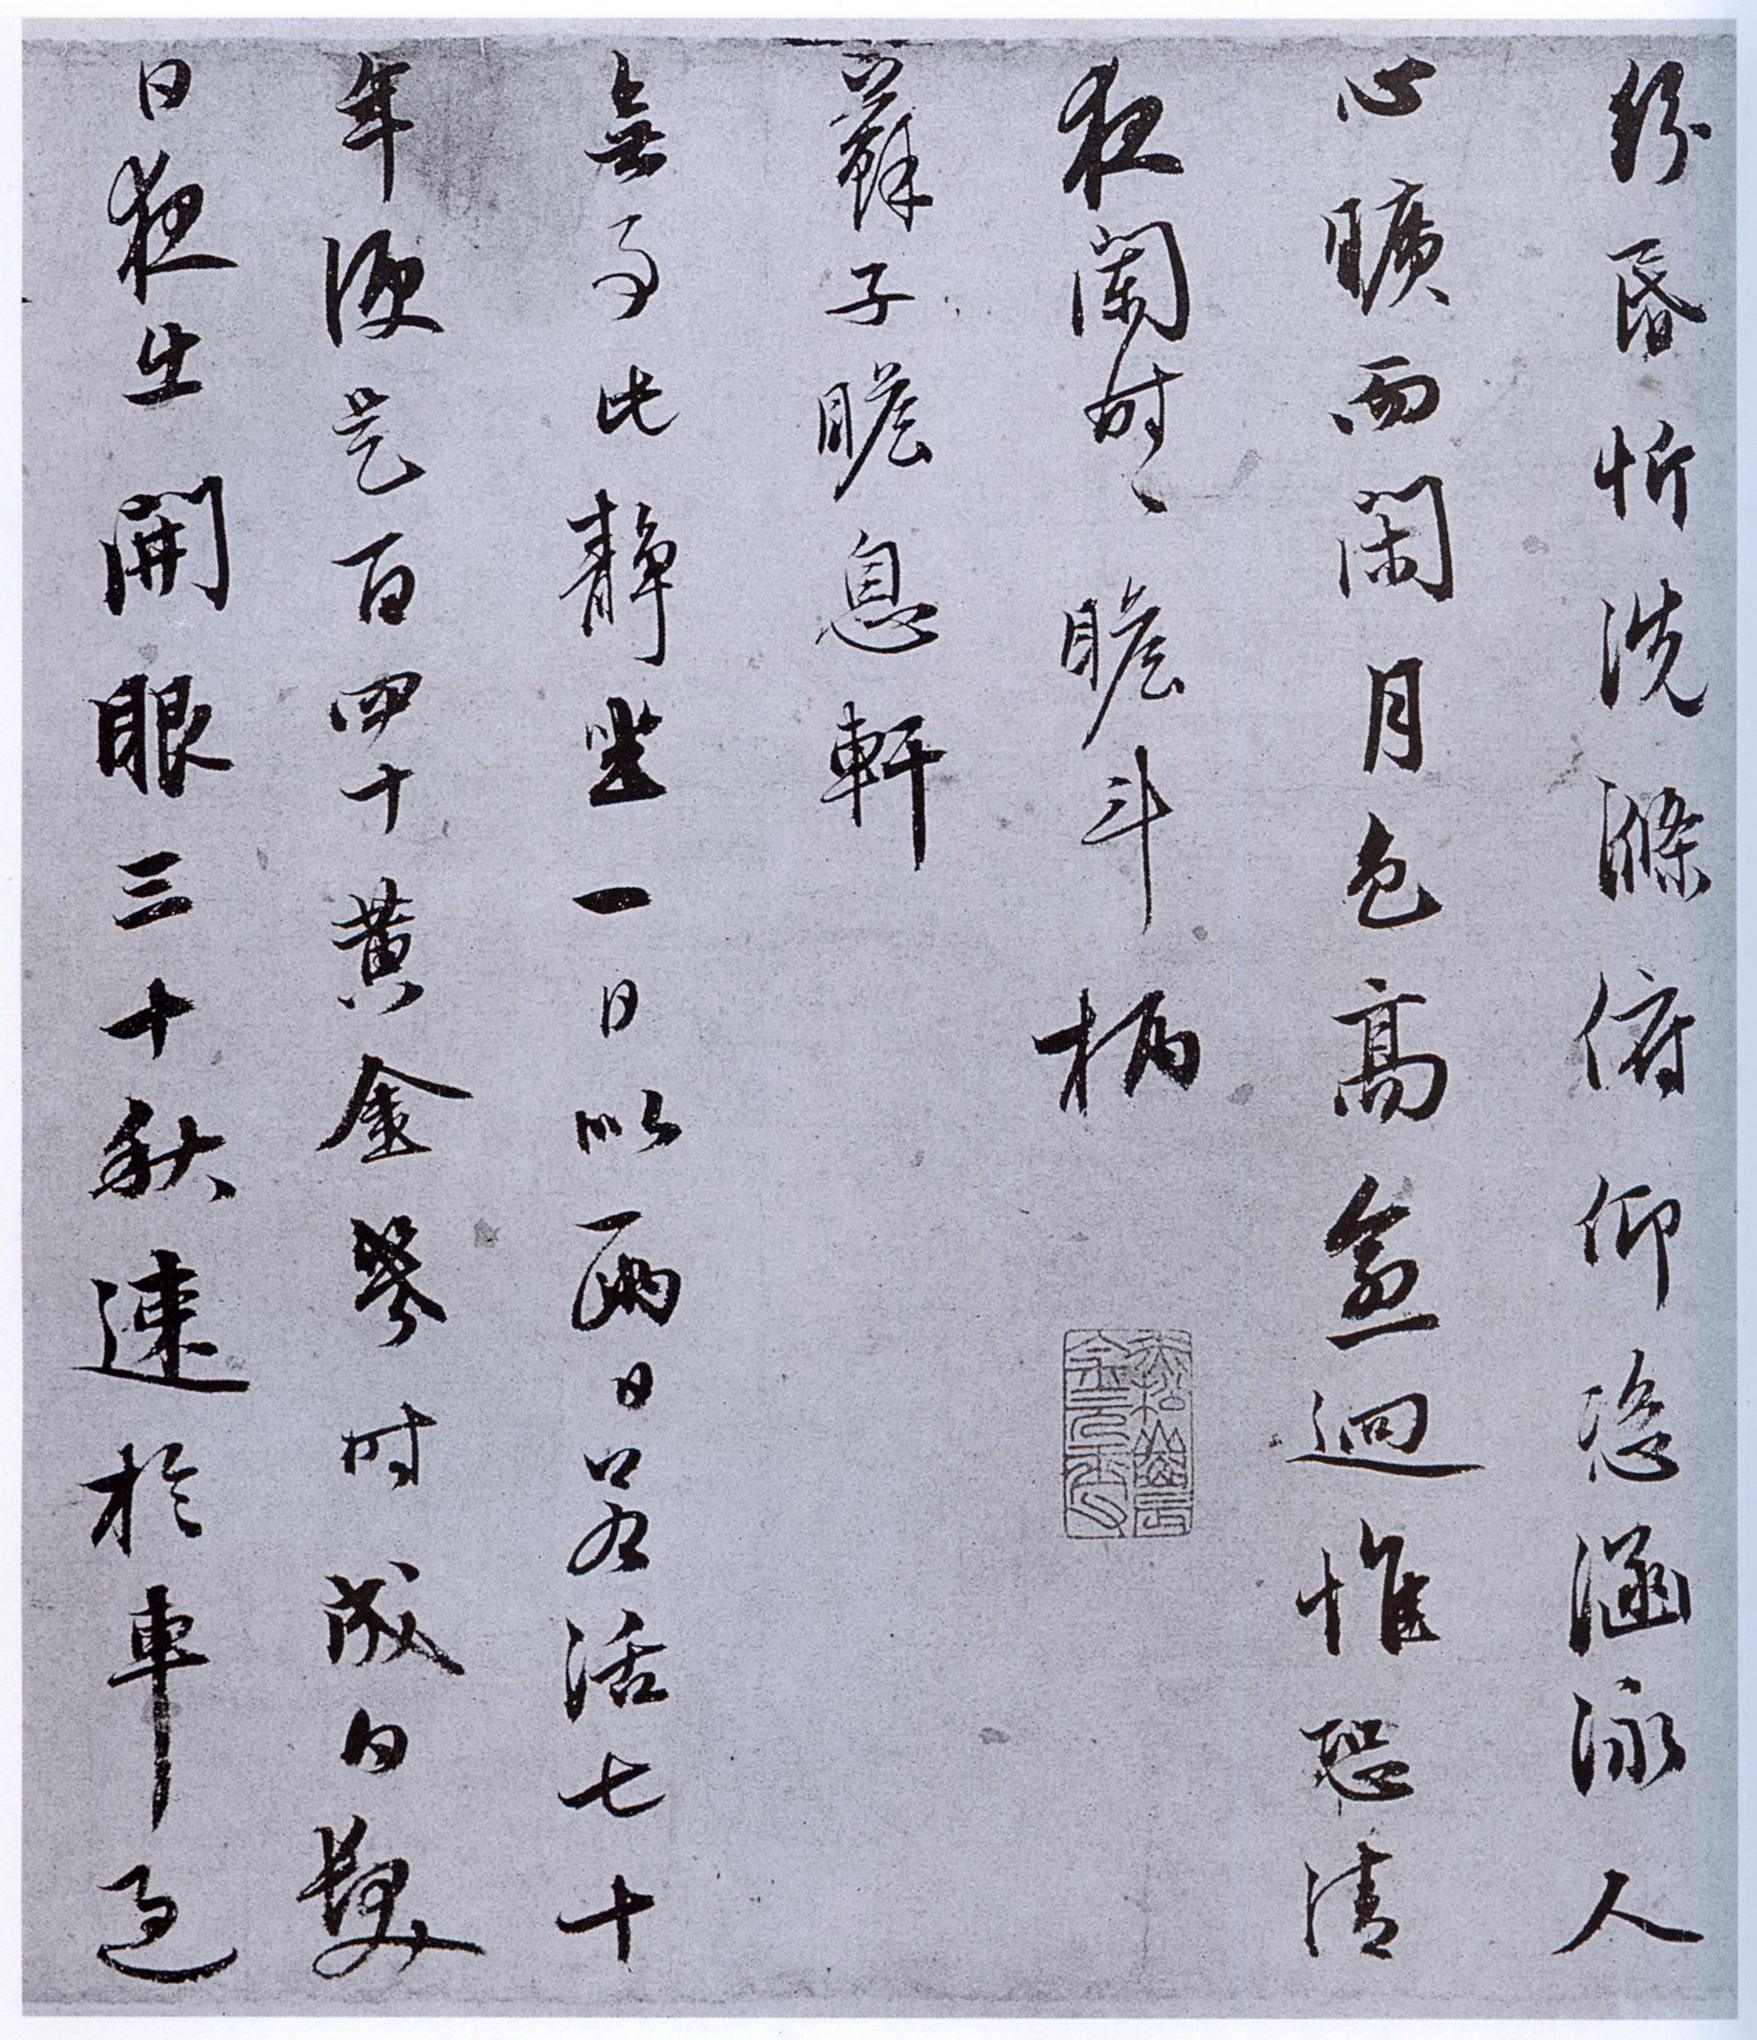 紛昏忻洗滌俯仰恣涵泳人
心曠而閑月色高愈迥惟恐清
夜闌時〻瞻斗柄
蘇子瞻息軒
無事此靜坐一日似兩日若活七十
年便是百四十黃金幾時成白髮
日夜生開眼三十秋速於車過